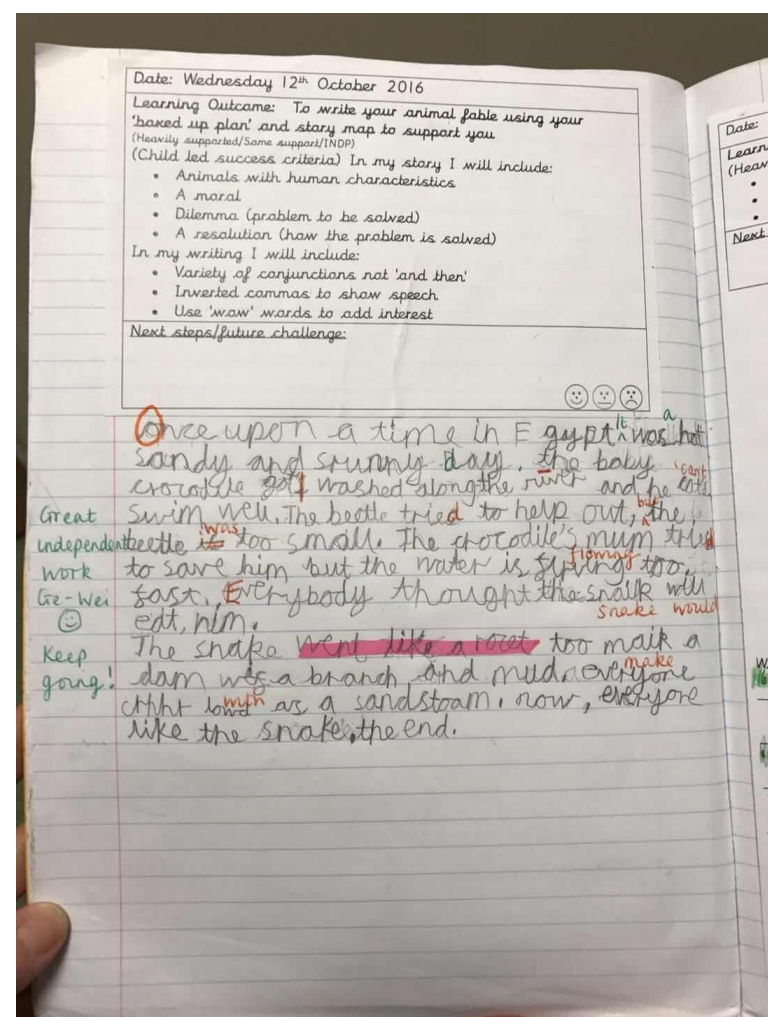 Date: Wednesday 12th October 2016
Learning Outcome: To write your animal fable using your
'boxed up plan' and story map to support you
(Heavily supported/Some support/INDP)
(Child led success criteria) In my story I will include:
• Animals with human characteristics
• A moral
• Dilemma (problem to be solved)
• A resolution (how the problem is solved)
In my writing I will include:
• Variety of conjunctions not 'and then'
• Inverted commas to show speech
• Use 'wow' words to add interest
Next steps/future challenge:
Once upon a time in E gypt it was a hot
sandy and srunny day. the baby
crocodile got washed along the river and he can't
swim well. The beetle tried to help out, but the
beetle was too small. The crocodile's mum tried
to save him but the water is flowing too
fast. Everybody thought the snaik will
snake would
edt him.
The snake went like a rocet too maik a
make
dam with a branch and mud. everyone
as a sandstoam. now, everyore
like the snake. the end.
Great
independent
work
Ge-Wei
Keep
going!
Date:
Learn
(Heav
Next